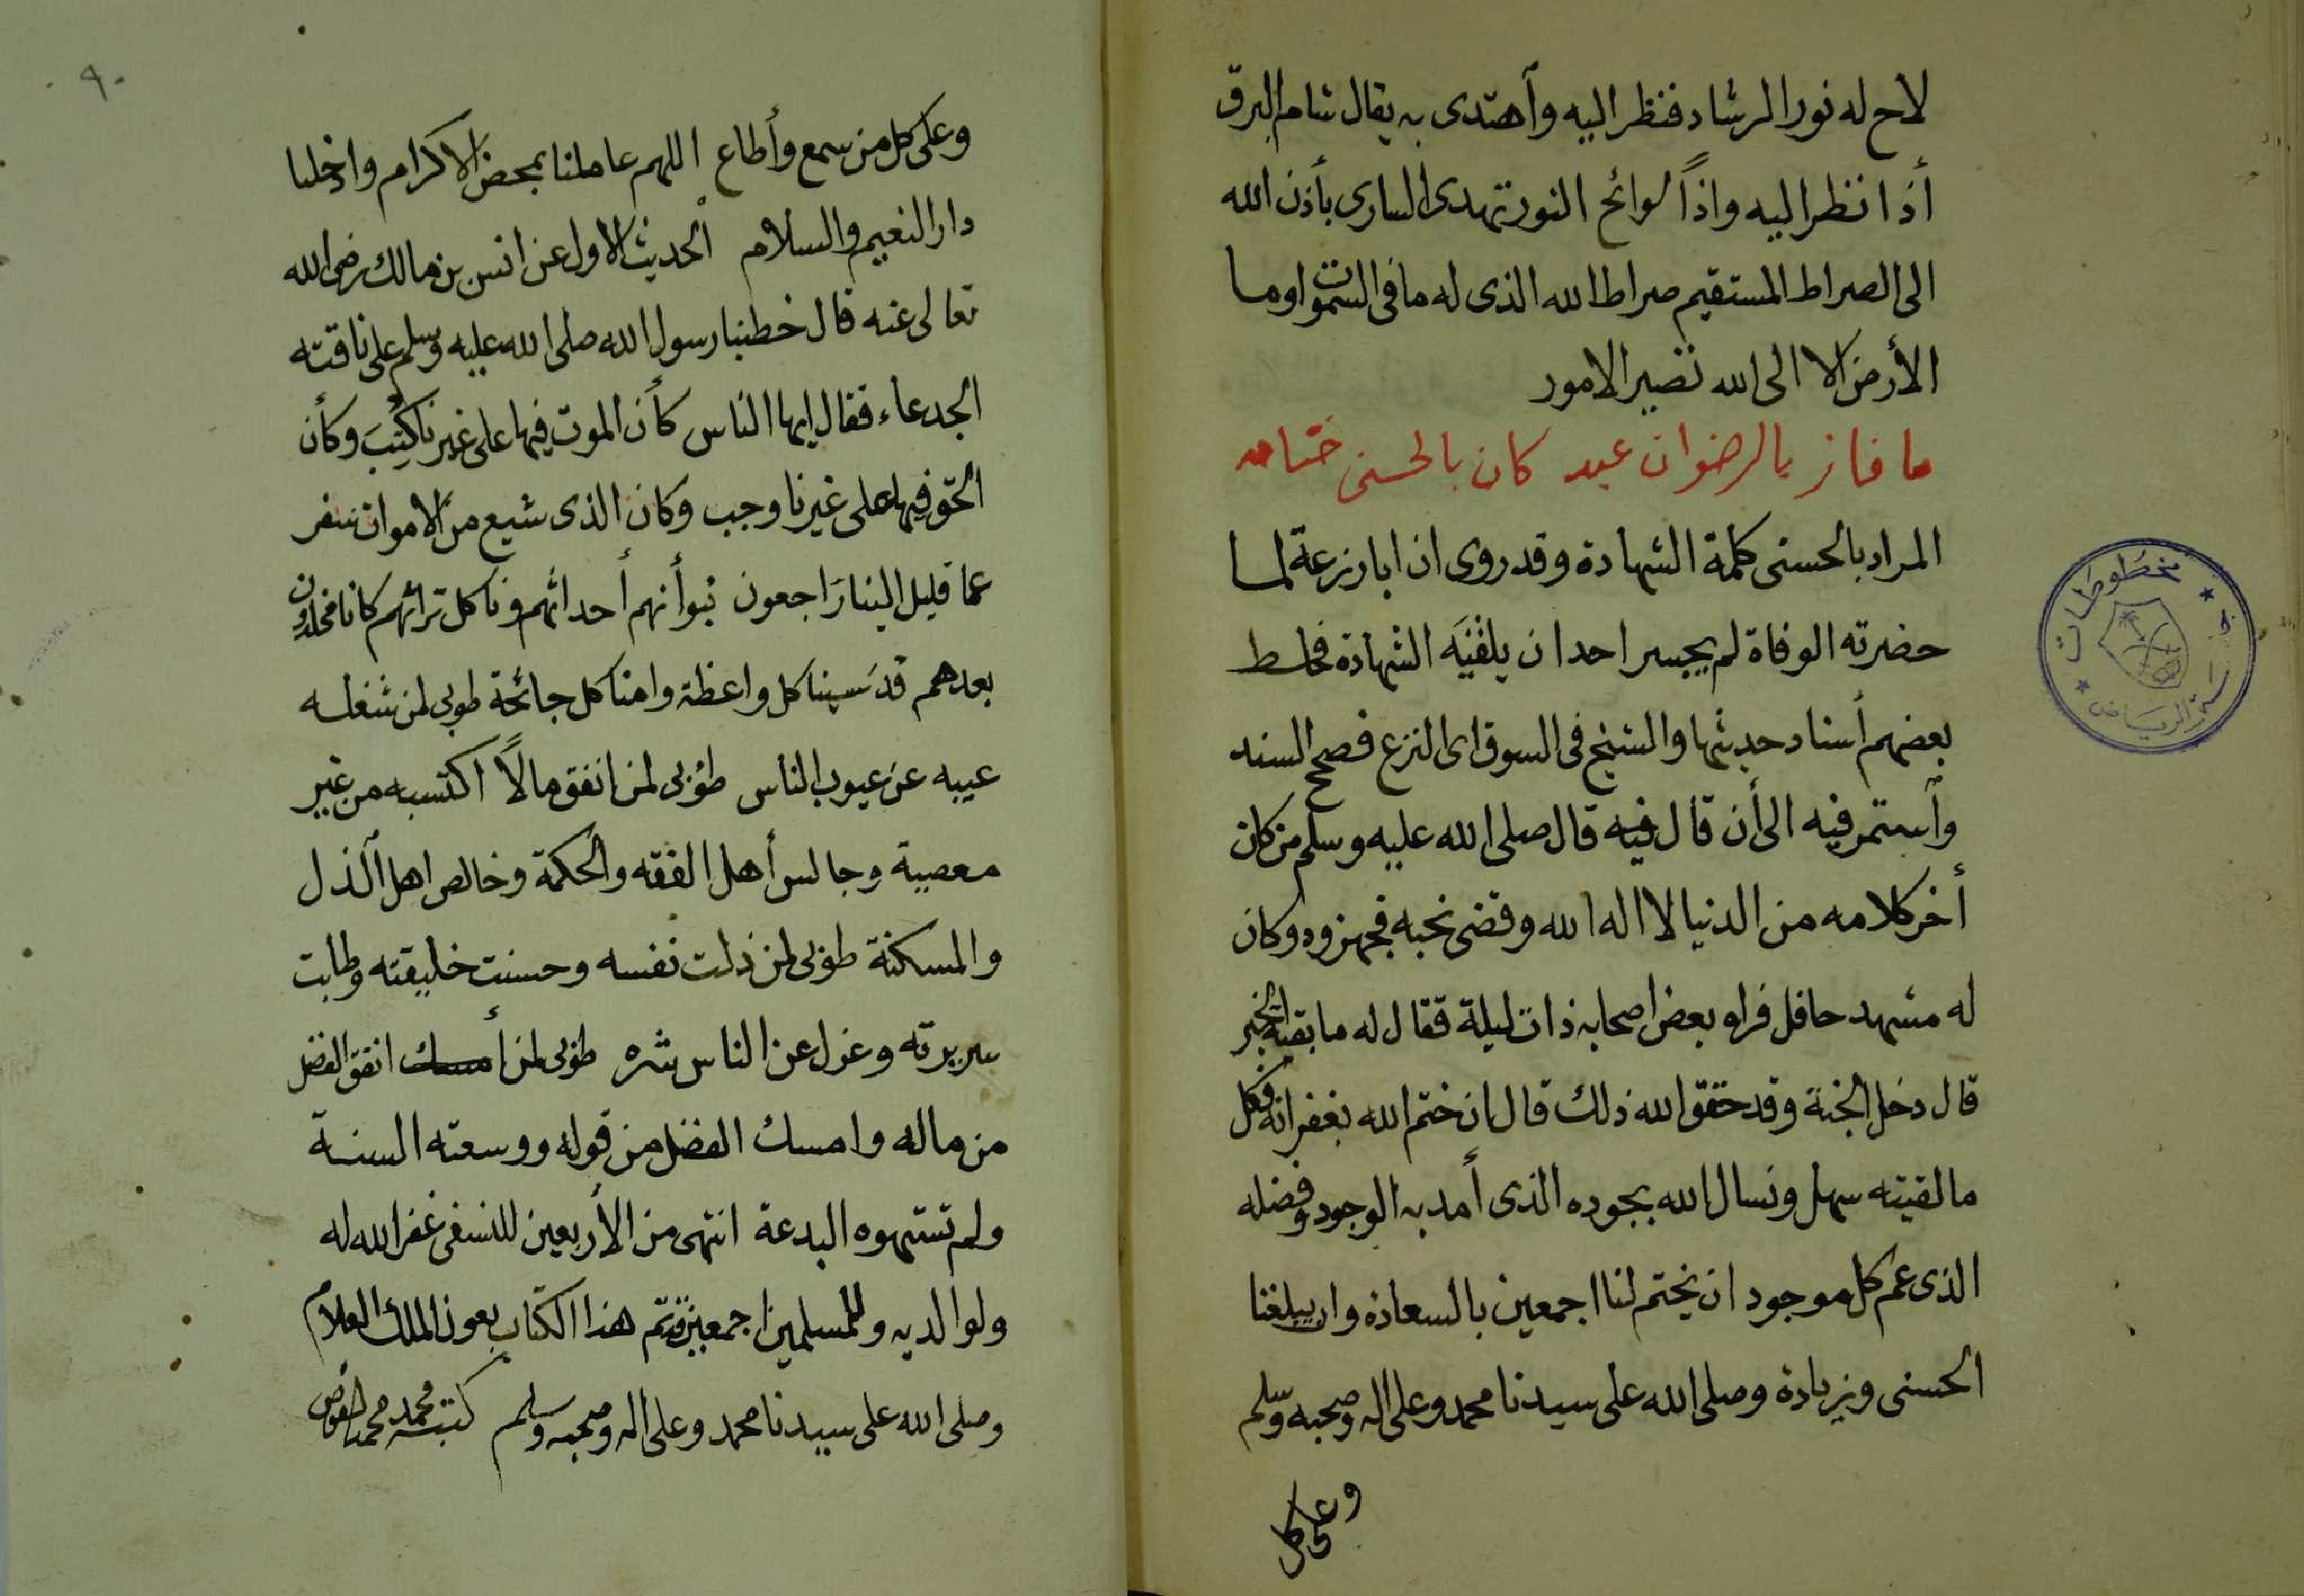 لاح له نور الرشاد فنظر اليه وآهتدى به يقال شام البرق
أذا نظر اليه واذاً لوائح النور تهدى السارى بأذن الله
الى الصراط المستقيم صراط الله الذى له ما فى السموات وما
الأرض الا الى الله تصير الامور
ما فاز بالرضوان عبد كان بالحسنى ختامه
المراد بالحسنى كلمة الشهادة وقد روى ان ابا زرعة لما
حضرته الوفاة لم يجسر احد ان يلقنَه الشهادة فخلط
بعضهم أسناد حديثها والشيخ فى السوق اى النزع فصحح السند
وآستمر فيه الى أن قال فيه قال صلى الله عليه وسلم من كان
أخر كلامه من الدنيا لا اله الا الله وقضى نحبه فجهزوه وكان
له مشهد حافل فراه بعض اصحابه ذات ليلة فقال له ما بقية الخبر
قال دخل الجنة وقد حقق الله ذلك قال ان ختم الله بغفرانه فكل
ما لقيته سهل ونسال الله بجوده الذى أمد به الوجود وفضله
الذى عم كل موجود ان يختم لنا اجمعين بالسعادة وان يبلغنا
الحسنى وزيادة وصلى الله على سيدنا محمد وعلى اله وصحبه وسلم
وعلى كل
مخطوطات
الرياض
٩٠
وعلى كل من سمع وأطاع اللهم عاملنا بمحض الاكرام وادخلنا
دار النعيم والسلام الحديث الاول عن انس بن مالك رضى الله
تعالى عنه قال خطبنا رسول الله صلى الله عليه وسلم على ناقته
الجدعاء فقال ايها الناس كأن الموت فيها على غيرنا كُتِبَ وكأن
الحق فيها على غيرنا وجب وكان الذى شيع من الاموات سفر
عما قليل الينا رَاجعون نبوأنهم أحداثهم وناكل تراثهم كانا مخلدون
بعدهم قد نسينا كل واعظة وامنا كل جائحة طوبى لمن شغله
عيبه عن عيوب الناس طوُبى لمن انفق مالاً اكتسبه من غير
معصية وجالس أهل الفقه والحكمة وخالص اهل آلذل
والمسكنة طوبى لمن ذلت نفسه وحسنت خليقته وطابت
سريرته وعزل عن الناس شره طوبى لمن أمسك انفق الفضل
من ماله وامسك الفضل من قوله ووسعته السنة
ولم تستهوه البدعة انتهى من الأربعين للنسفى غفر الله له
ولوالديه وللمسلمين اجمعين تتم هذا الكتاب بعون الملك العلام
وصلى الله على سيدنا محمد وعلى اله وصحبه وسلم كتبه محمد محمد